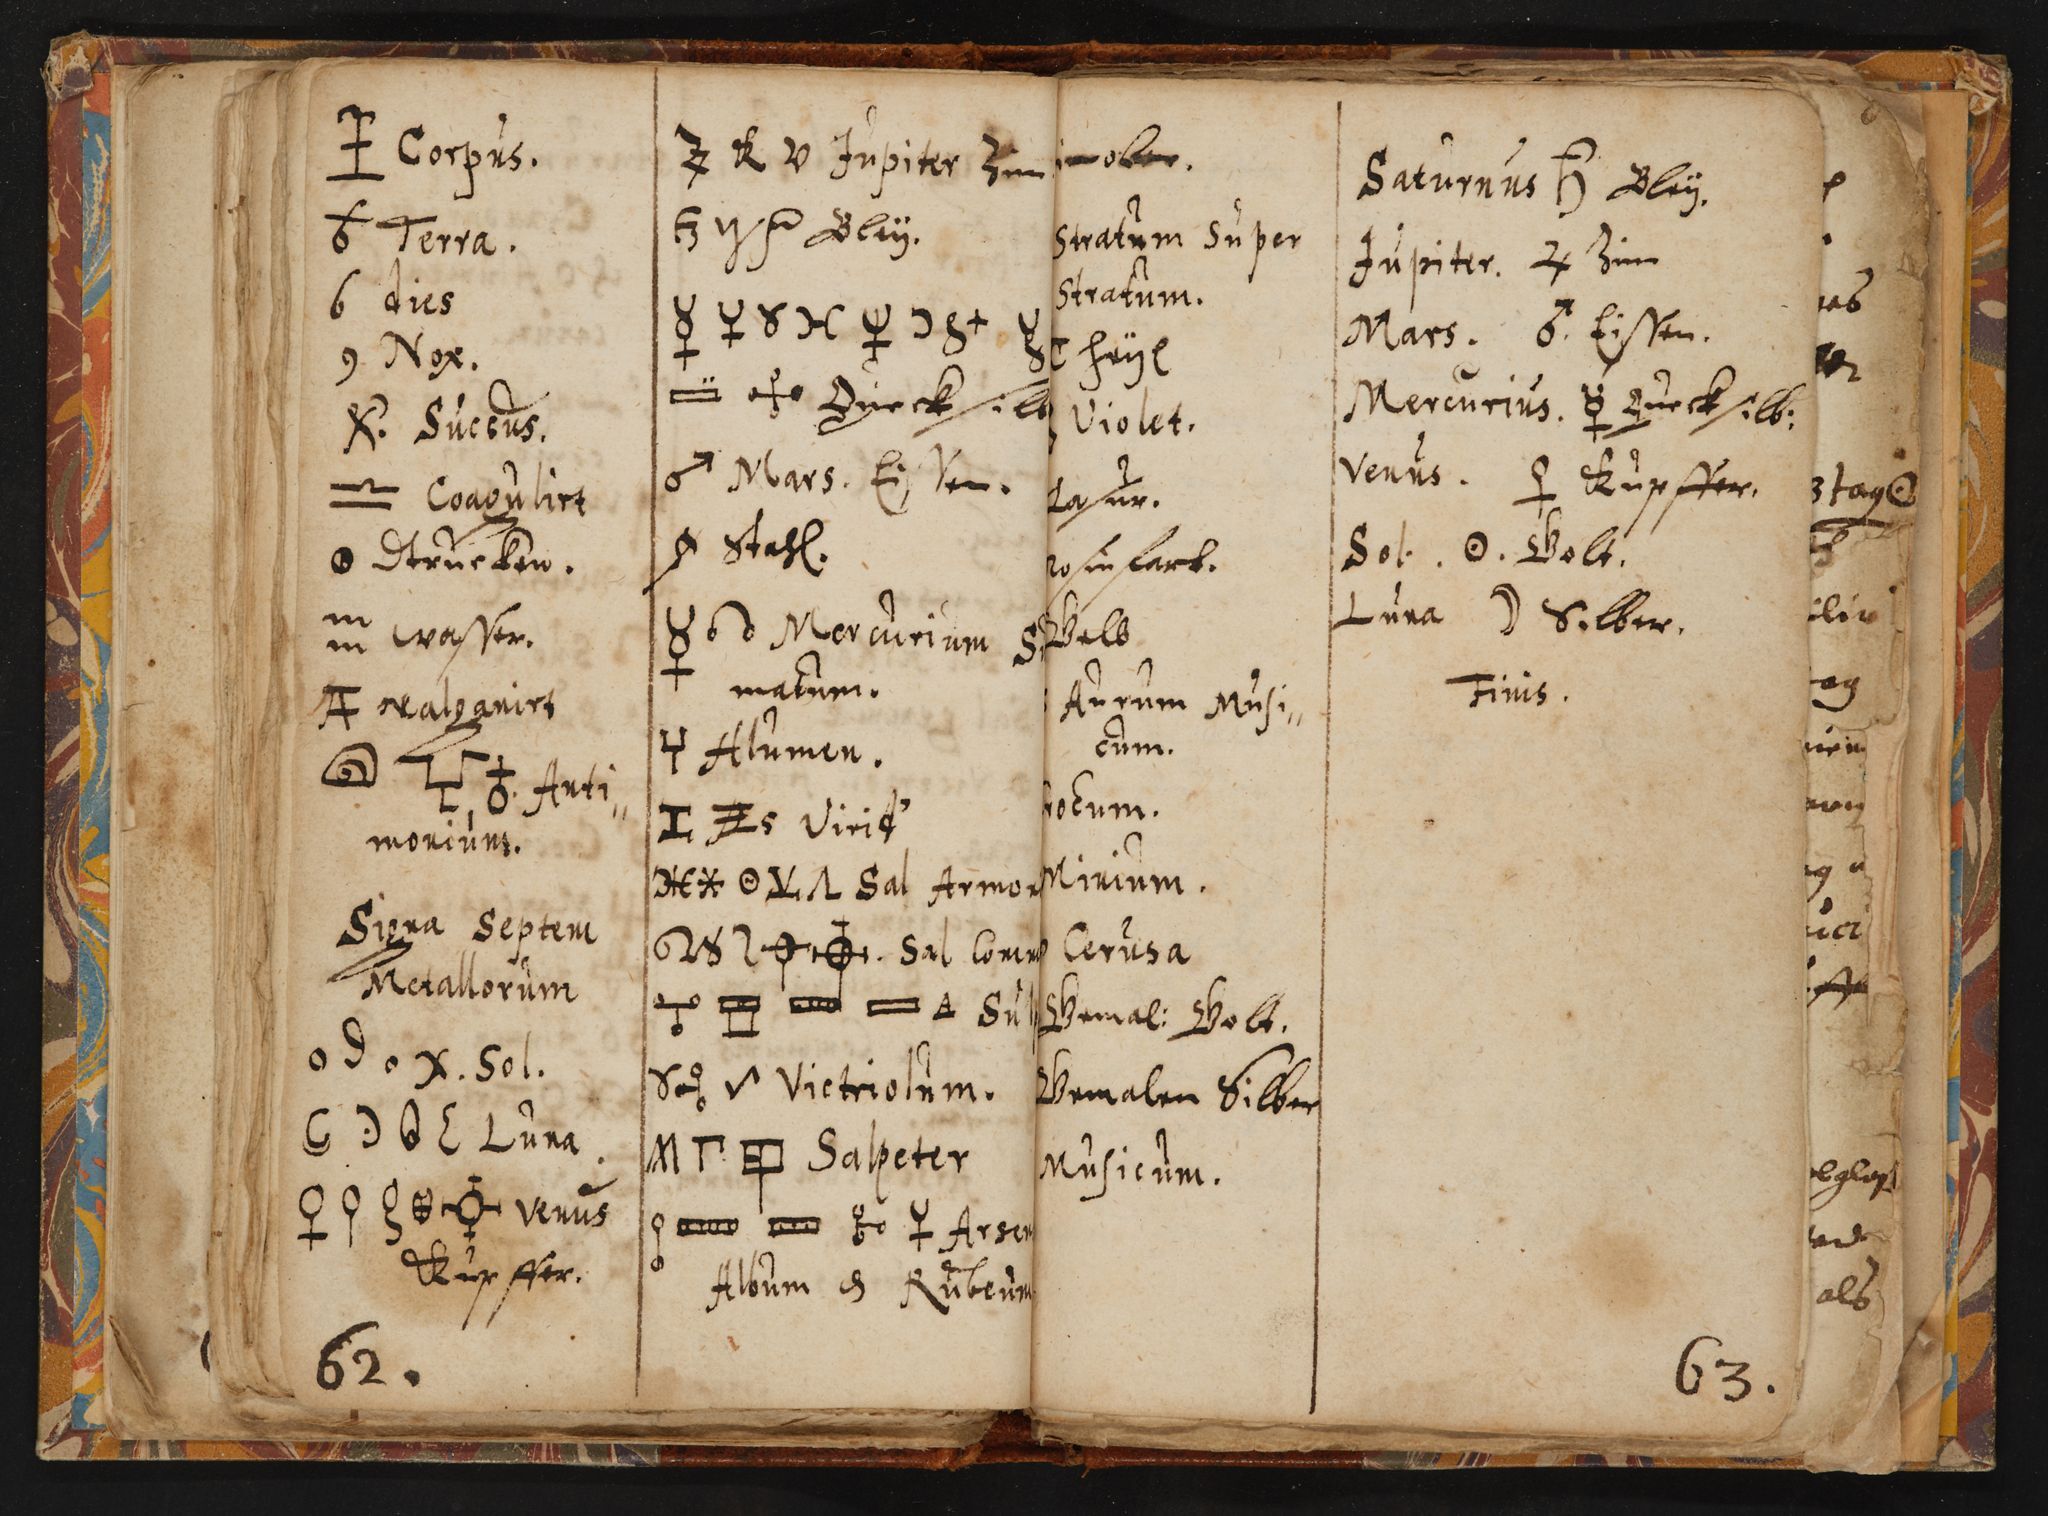 Corpus.
♁ Terra.
6 dies
9 Nox.
X. Succus.
Coagulirt
Dtrucken.
wasser.
Anti"
monium.
Signa Septem
Metallorum
X. Sol.
Luna.
♀ Venus
Kupffer.
62.
♃ Jupiter Zinn
Bley.
☿ Quecksilb
♂ Mars. Eissen.
Stahl.
☿ Mercurium
matum.
Alumen.
Sal Armon
Sal Comm
Victriolum.
Salpeter
Arsen
Album et Rubeum
mober.
Stratum Super
Stratum.
Theyl
Violet.
Lasur.
rosinfarb.
Gelb
Aurum Musi"
cum.
Minium.
Cerusa
Gemal: Golt.
Gemalen Silber
Musicum.
Saturnus ♄ Bley.
Jupiter. ♃ Zinn
Mars. ♂. Eissen.
Mercurius. ☿ Quecksilb:
Venus. ♀ Kupffer.
Sol. ☉. Golt.
Luna ☽ Silber.
Finis.
63.